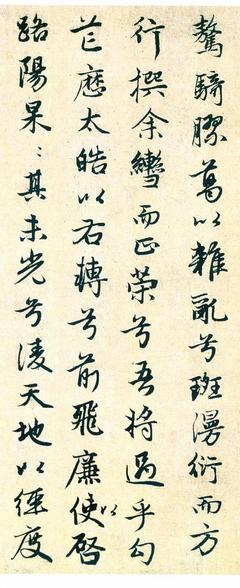 驁騎膠葛以雜亂兮斑漫衍而方
行撰余轡而正策兮吾將過乎勾
芒歷太皓以右轉兮前飛廉使以啓
路陽杲〻其未光兮淩天地以徑度